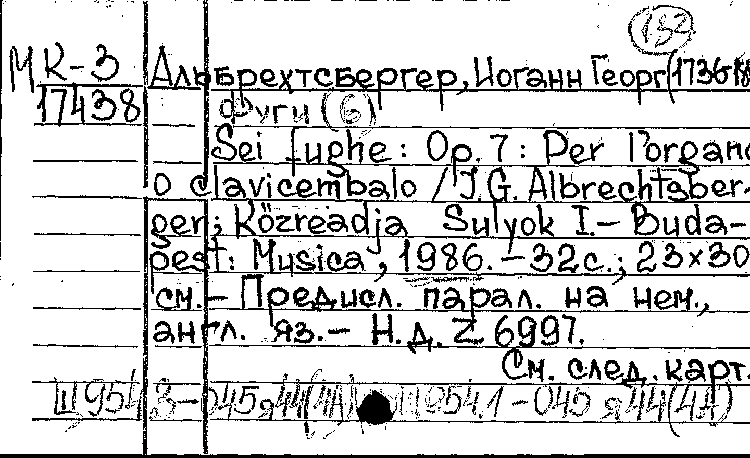 132
МК-3 Альбрехтсбергер, Иоганн Георг (1736-18
17438 Фуги (6)
Sei fughe: Op. 7: Per l'organo
o clavicembalo / J.G. Albrechtsber-
ger; Közreadja Sulyok I.- Buda-
pest: Musica, 1986. - 32с.; 23×30
см.- Предисл. парал. на нем.,
англ. яз.- Н.д. Z 6997.
См. след. карт.
Щ954.3-045я44(4А) Щ954.1-045я44(4А)